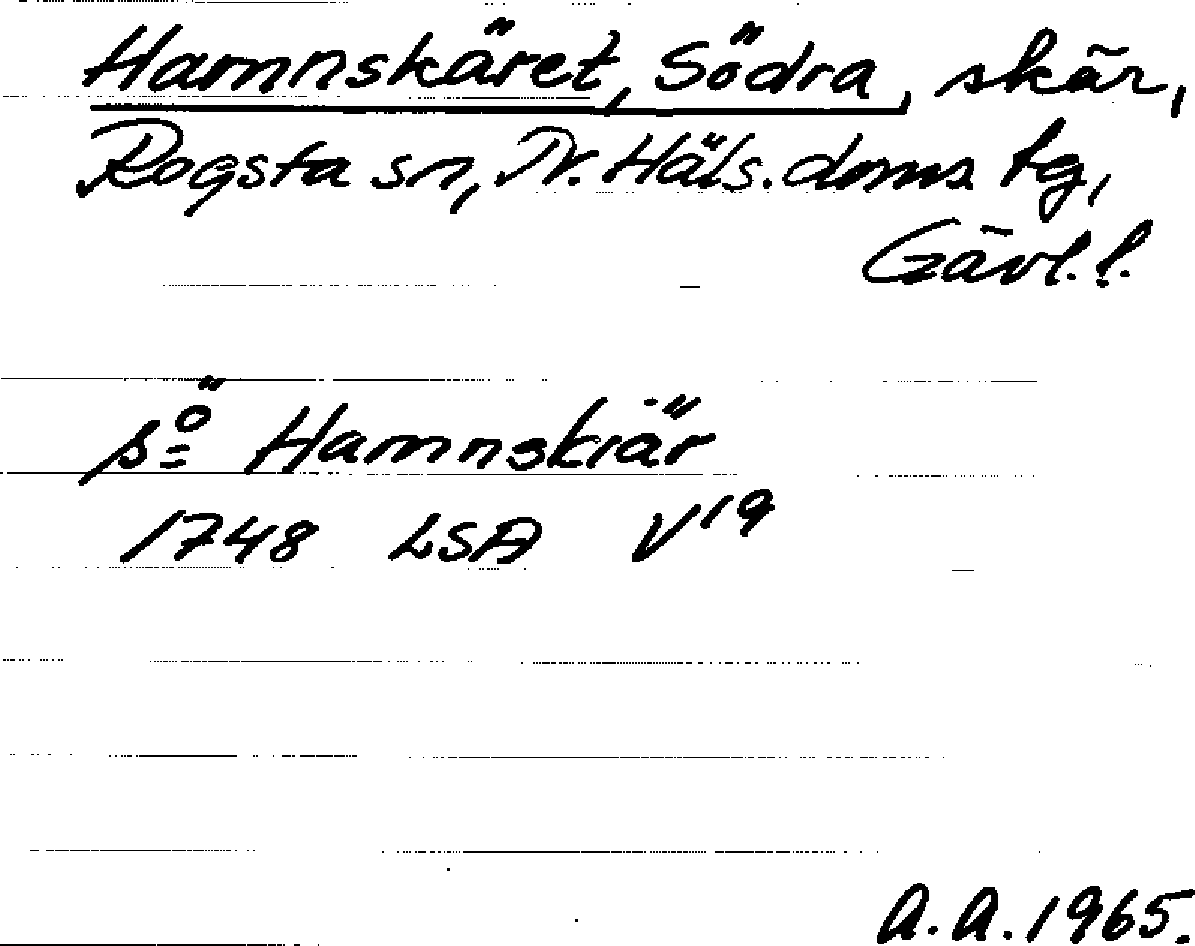 Hamnskäret, Södra, skär,
Rogsta sn, N. Häls. doms tg,
Gävl. l.
sö= Hamnskiär
1748 LSA V19
A.A. 1965.